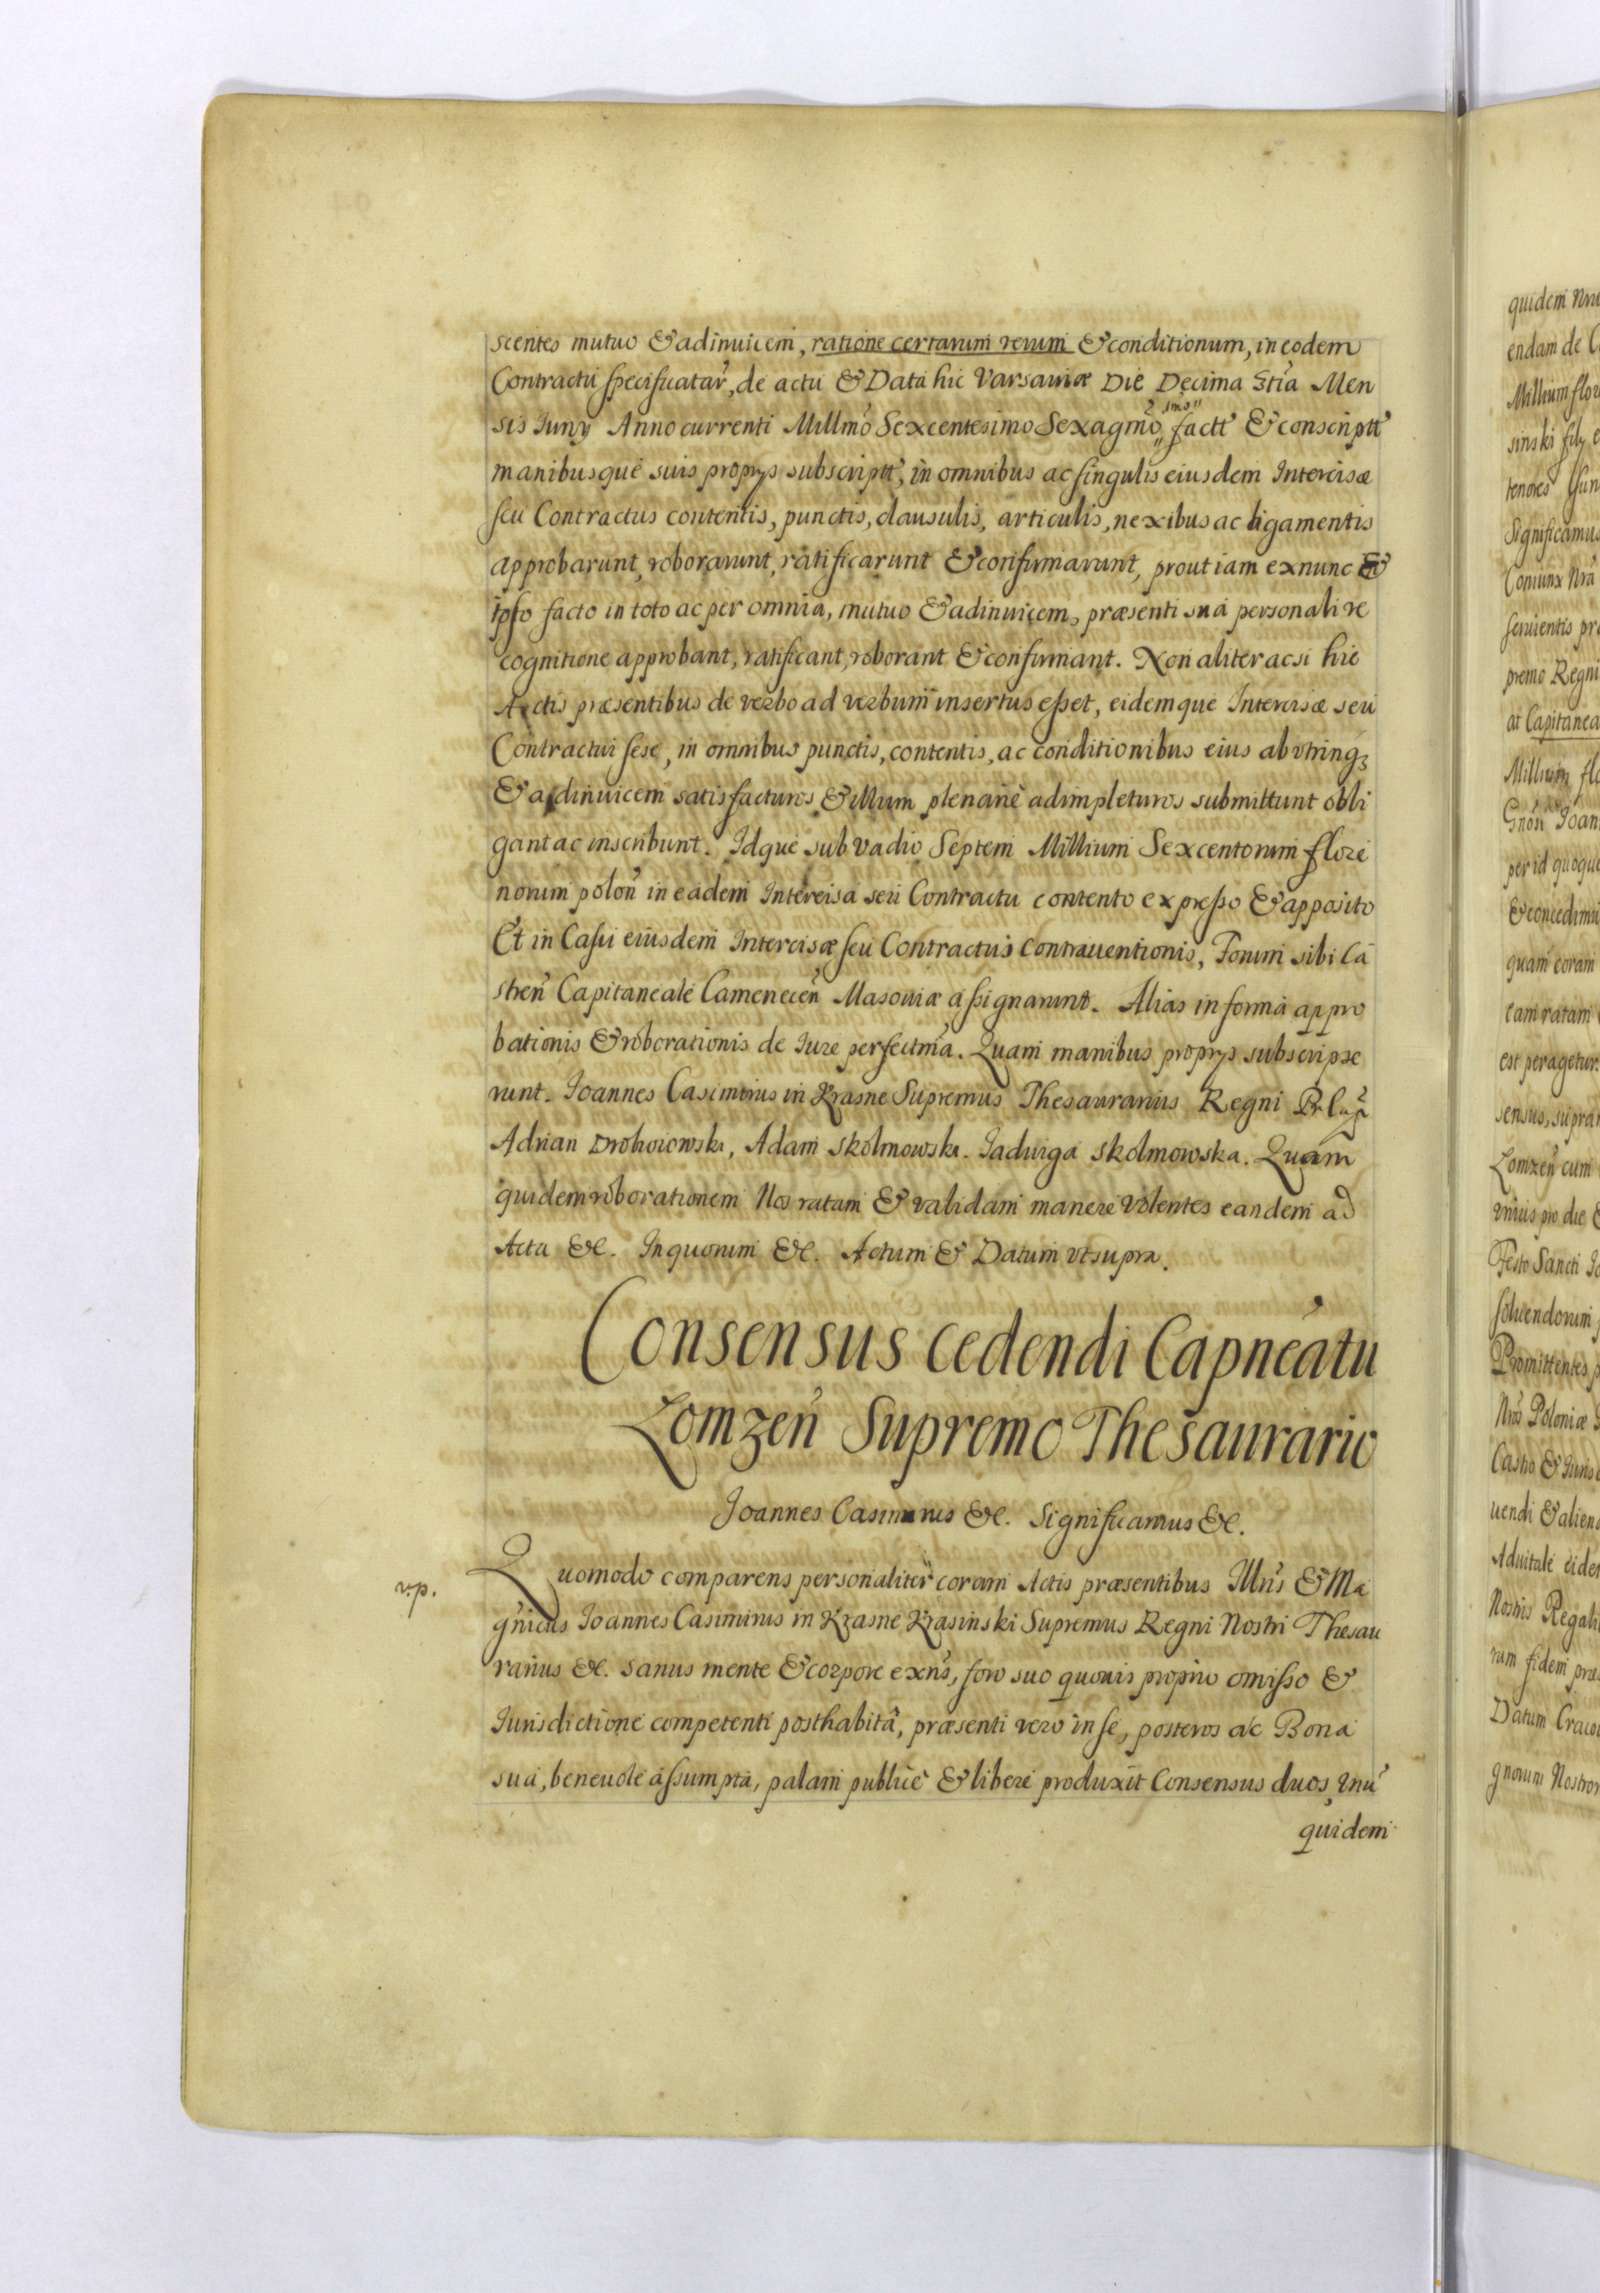 scentes mutuo & adinuicem, ratione certarum rerum & conditionum, in eodem
Contractu specificatar̃, de actu & Data hic Varsauiæ Die Decima 3tia Men
sis Iunÿ Anno currenti Millmõ Sexcentesimo Sexagmõ factt̃ & conscriptt̃
manibusque suis proprys subscriptt̃, in omnibus ac singulis eiusdem Intercisæ
seu Contractus contentis, punctis, clausulis, articulis, nexibus ac ligamentis
approbarunt, roborarunt, ratificarunt & confirmarunt, prout iam exnunc &
ipso facto in toto ac per omnia, mutuo & adinuicem, præsenti sua personali re
cognitione approbant, ratificant, roborant & confirmant. Non aliter acsi hic
Actis præsentibus de verbo ad verbum insertus esset, eidemque Intercisæ seu
Contractui sese, in omnibus punctis, contentis, ac conditionibus eius ab vtrinq3
& adinuicem satisfacturos & illum plenariè adimpleturos submittunt obli
gant ac inscribunt. Idque sub vadio Septem Millium Sexcentorum flore
norum polon̄ in eadem Intercisa seu Contractu contento expresso & apposito
Et in Casu eiusdem Intercisæ seu Contractus contrauentionis, Forum sibi Ca
stren̄ Capitaneale Camenecen̄ Masoviæ assignarunt. Alias in forma appro
bationis & roborationis de Iure perfectma. Quam manibus proprys subscripse
runt. Ioannes Casimirus in Krasne Supremus Thesaurarius Regni
Adrian Drohoiowski, Adam Skolmowski. Iadwiga Skolmowska. Quam
quidem roborationem Nos ratam & validam manere volentes eandem ad
Acta &c. In quorum &c. Actum & Datum vt supra.
Consensus cedendi Capneatu
Lomzen̄ Supremo Thesaurario
Ioannes Casimirus &c. Significamus &c.
Quomodo comparens personaliter coram Actis præsentibus Illris & Ma
gnicus Ioannes Casimirus in Krasne Krasinski Supremus Regni Nostri Thesau
rarius &c. sanus mente & corpore exñs, foro suo quouis proprio omisso &
Iurisdictione competenti posthabitâ, præsenti vero in se, posteros ac Bona
sua, beneuole assumpta, palam publicè & libere produxit Consensus duos, vnũ
r.p.
quidem